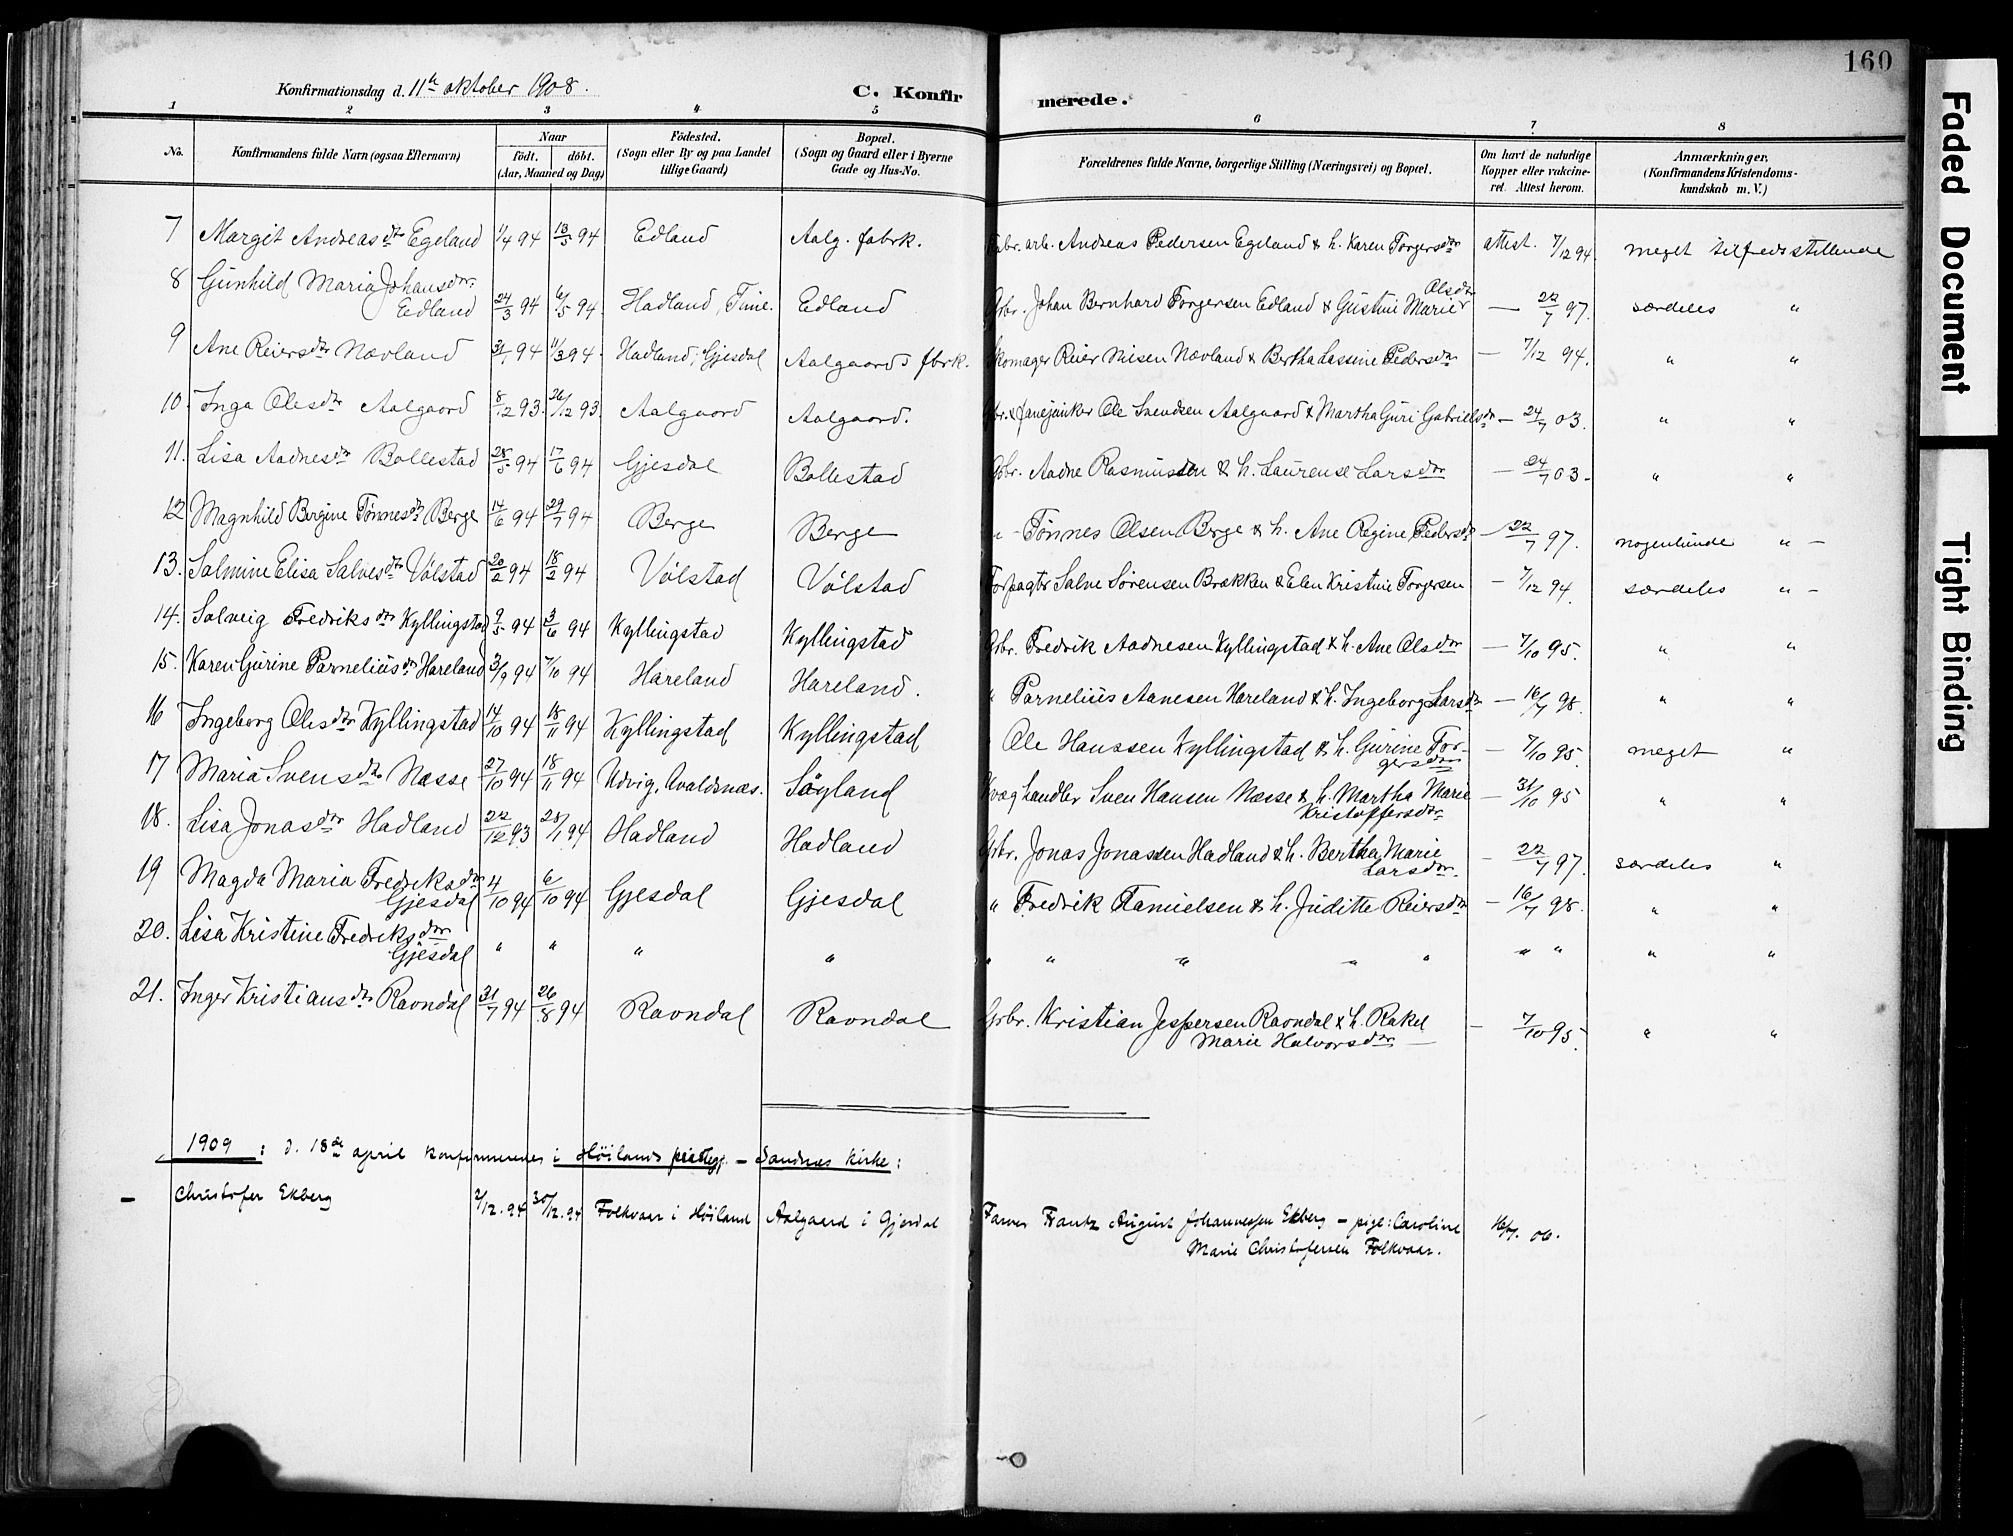 160
Konfirmationsdag d. 11te oktober 1908.
C. Konfirmerede.
1 2 3 4 5 6 7 8
No.
Konfirmandens fulde Navn (ogsaa Efternavn)
Naar
födt. döbt.
(Aar, Maaned og Dag)
Födested.
(Sogn eller By og paa Landet
tillige Gaard)
Bopæl.
(Sogn og Gaard eller i Byerne
Gade og Hus-No.
Forældrenes fulde Navne, borgerlige Stilling (Næringsvei) og Bopæl.
Om havt de naturlige
Kopper eller vakcine-
ret. Attest herom.
Anmærkninger.
(Konfirmandens Kristendoms-
kundskab m. V.)
7 Margit Andreasdtr Egeland 1/4 94 13/5 94 Edland Aalg. fabrk. Fabr. arb. Andreas Pedersen Egeland & h. Karen Torgersdtr attest. 7/12 94 meget tilfredsstillende
8 Gunhild Maria Johansdtr.
Edland 24/3 94 6/5 94. Hadland, Time. Edland Gbr. Johan Bernhard Torgersen Edland & Gustine Marie Olsdtr — 22/7 97. særdeles "
9 Ane Reiersdtr Nævland 31/1 94 11/3 94. Hadland, Gjesdal Aalgaards fbrk. Skomager Reier Nilsen Nævland & Bertha Lassine Pedersdtr — 7/12 94. " "
10. Inga Olesdtr Aalgaard 8/12 93. 26/12 93. Aalgaard Aalgaard. Gbr. & fanejunker Ole Svendsen Aalgaard & Martha Guri Gabrielsdtr — 24/7 03. " "
11. Lisa Aadnesdtr Bollestad 28/5 94 17/6 94 Gjesdal Bollestad Gbr. Aadne Rasmussen & h. Laurense Larsdtr — 24/7 03. " "
12 Magnhild Bergine Tönnesdtr Berge 14/6 94 29/7 94 Berge Berge " Tönnes Olsen Berge & h. Ane Regine Pedersdtr — 22/7 97. nogenlunde " —
13. Salmine Elisa Salvesdtr Völstad 20/2 94 18/2 94 Völstad Völstad Forpagter Salve Sörensen Brækken & Elen Kristine Torgersen — 7/12 94. særdeles " —
14. Solveig Fredriksdtr Kyllingstad 9/5 94 3/6 94 Kyllingstad Kyllingstad Gbr. Fredrik Aadnesen Kyllingstad & h. Ane Olsdtr — 7/10 95. " "
15. Karen Gurine Parneliusdtr Hareland 3/9 94 7/10 94 Hareland Hareland. " Parnelius Aanesen Hareland & h. Ingeborg Larsdtr — 16/7 98. " "
16 Ingeborg Olesdtr Kyllingstad 14/10 94 18/11 94 Kyllingstad Kyllingstad " Ole Hanssen Kyllingstad & h. Gurine Tor-
gersdtr — 7/10 95. meget "
17 Maria Svensdtr Nesse 27/10 94 18/11 94 Utvig, Avaldsnæs. Söyland Kvæghandler Sven Hansen Nesse & h. Martha Marie
Kristoffersdtr. — 31/10 95 " "
18. Lisa Jonasdtr Hadland 22/12 93 28/1 94 Hadland Hadland Gbr. Jonas Jonassen Hadland & h. Bertha Marie
Larsdtr. — 22/7 97. særdeles "
19 Magda Maria Fredriksdtr
Gjesdal 4/10 94 6/10 94 Gjesdal Gjesdal " Fredrik Tamielsen & h. Juditte Reiersdtr — 16/7 98. " "
20. Lisa Kristine Fredriksdtr
Gjesdal " " " " " " " " " " " " "
21. Inger Kristiansdtr Ravndal 31/7 94 26/8 94 Ravndal Ravndal Gbr. Kristian Jespersen Ravndal & h. Rakel
Marie Halvorsdtr — — 7/10 95. " "
1909: d. 18de april konfirmeredes i Höilands pr.gj. — Sandnes kirke:
— Christofer Ekberg 2/12. 94 30/12. 94 Folkvaar i Höiland Aalgaard i Gjesdal Farver Frantz August Johannessen Ekberg — pige: Caroline
Marie Christofersen Folkvaar. 16/7. 06.
Faded Document
Tight Binding